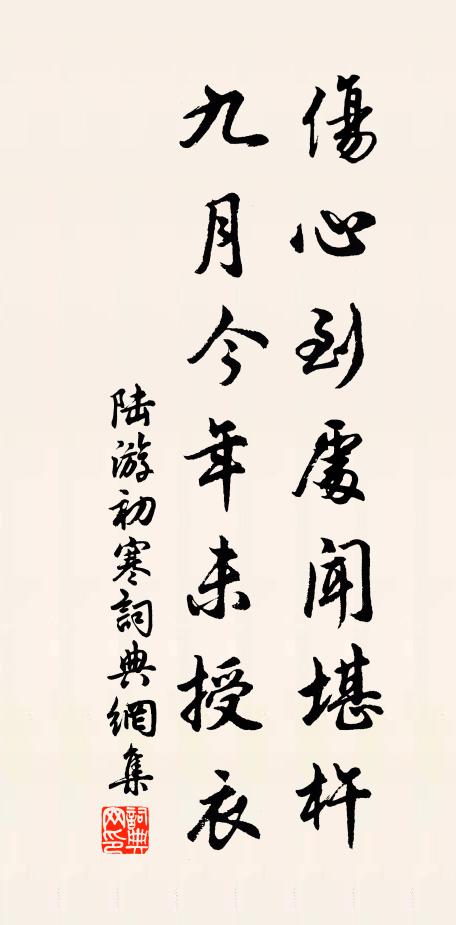 傷心到處聞堪杵
九月今年未授衣
陆游初寒詞典網集
詞典網印